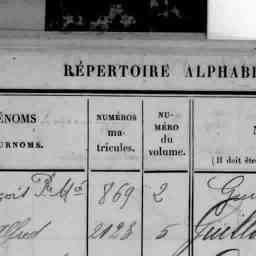 RÉPERTOIRE ALPHABE
ÉNOMS
URNOMS.
NUMÉROS
ma-
tricules.
NU-
MÉRO
du
volume.
N
(Il doit être
çois 869 2
lfred 2123 5 Guillo